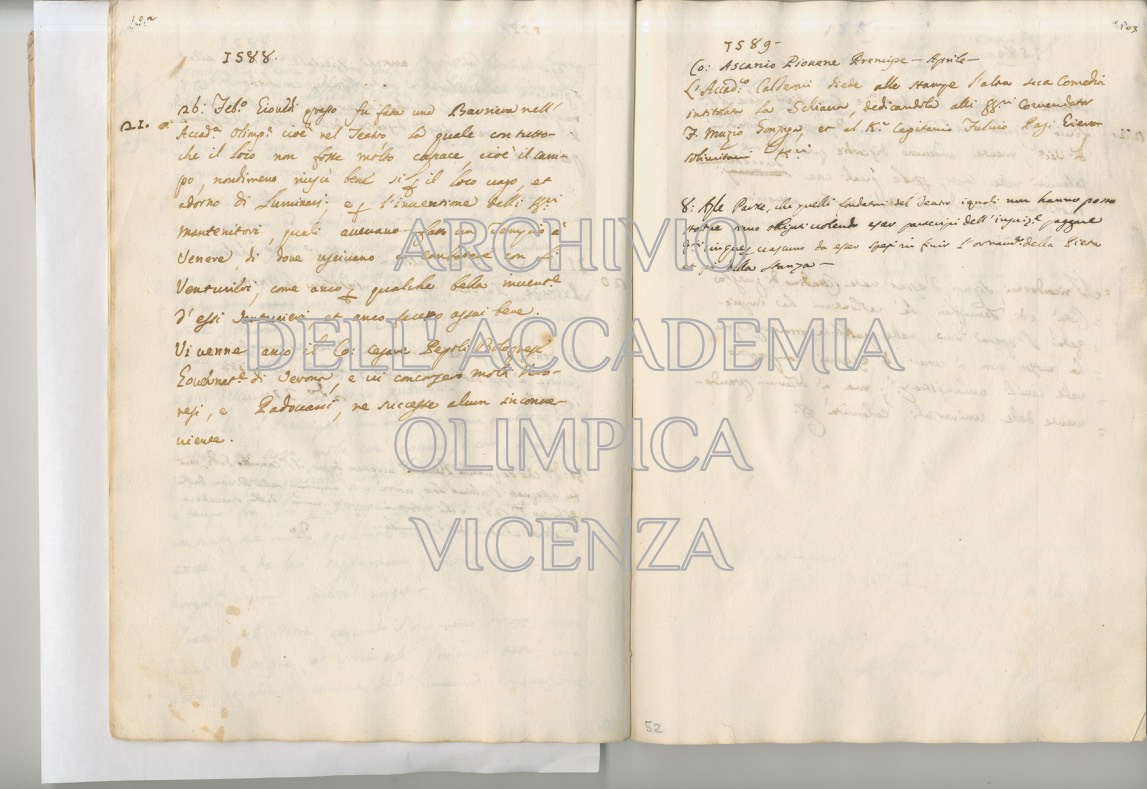 102
1588.
21.
26: Feb.º Giovedì grasso fu fata una Barriera nell'
Accad.ª Olimp.ª cioè nel Teatro la quale con tutto-
che il loco non fosse molto capace, cioè il cam-
po, nondimeno riuscì bene sì il loco vago, et
adorno di Luminarj, e l'inventione delli SS.ri
mantenitori, quali avevano fato un Tempio à
Venere, di dove uscivano à combatere con li
Venturieri, come anco qualche bella invent.e
d'essi venturieri et anco fecero assai bene.
Vi venne anco il Co: Cesare Pepoli Bolognese
Governat.r di Verona, e vi concorsero molti Vero-
nesi, e Padovani, ne successe alcun inconve-
niente.
103
1589-
Co: Ascanio Piovene Prencipe - Aprile -
L'Accad.co Calderari diede alle stampe l'altra sua Comedia
intitolata la Schiava, dedicandola alli SS.ri Comendator
F. Muzio Gonzaga, et al K.r Capitanio Fulvio
8: Aple Parte, che quelli del Teatro i quali non hanno posto
statue
da esser spesi in finir l'ornam.to della
della stanza -
52
ARCHIVIO
DELL'ACCADEMIA
OLIMPICA
VICENZA